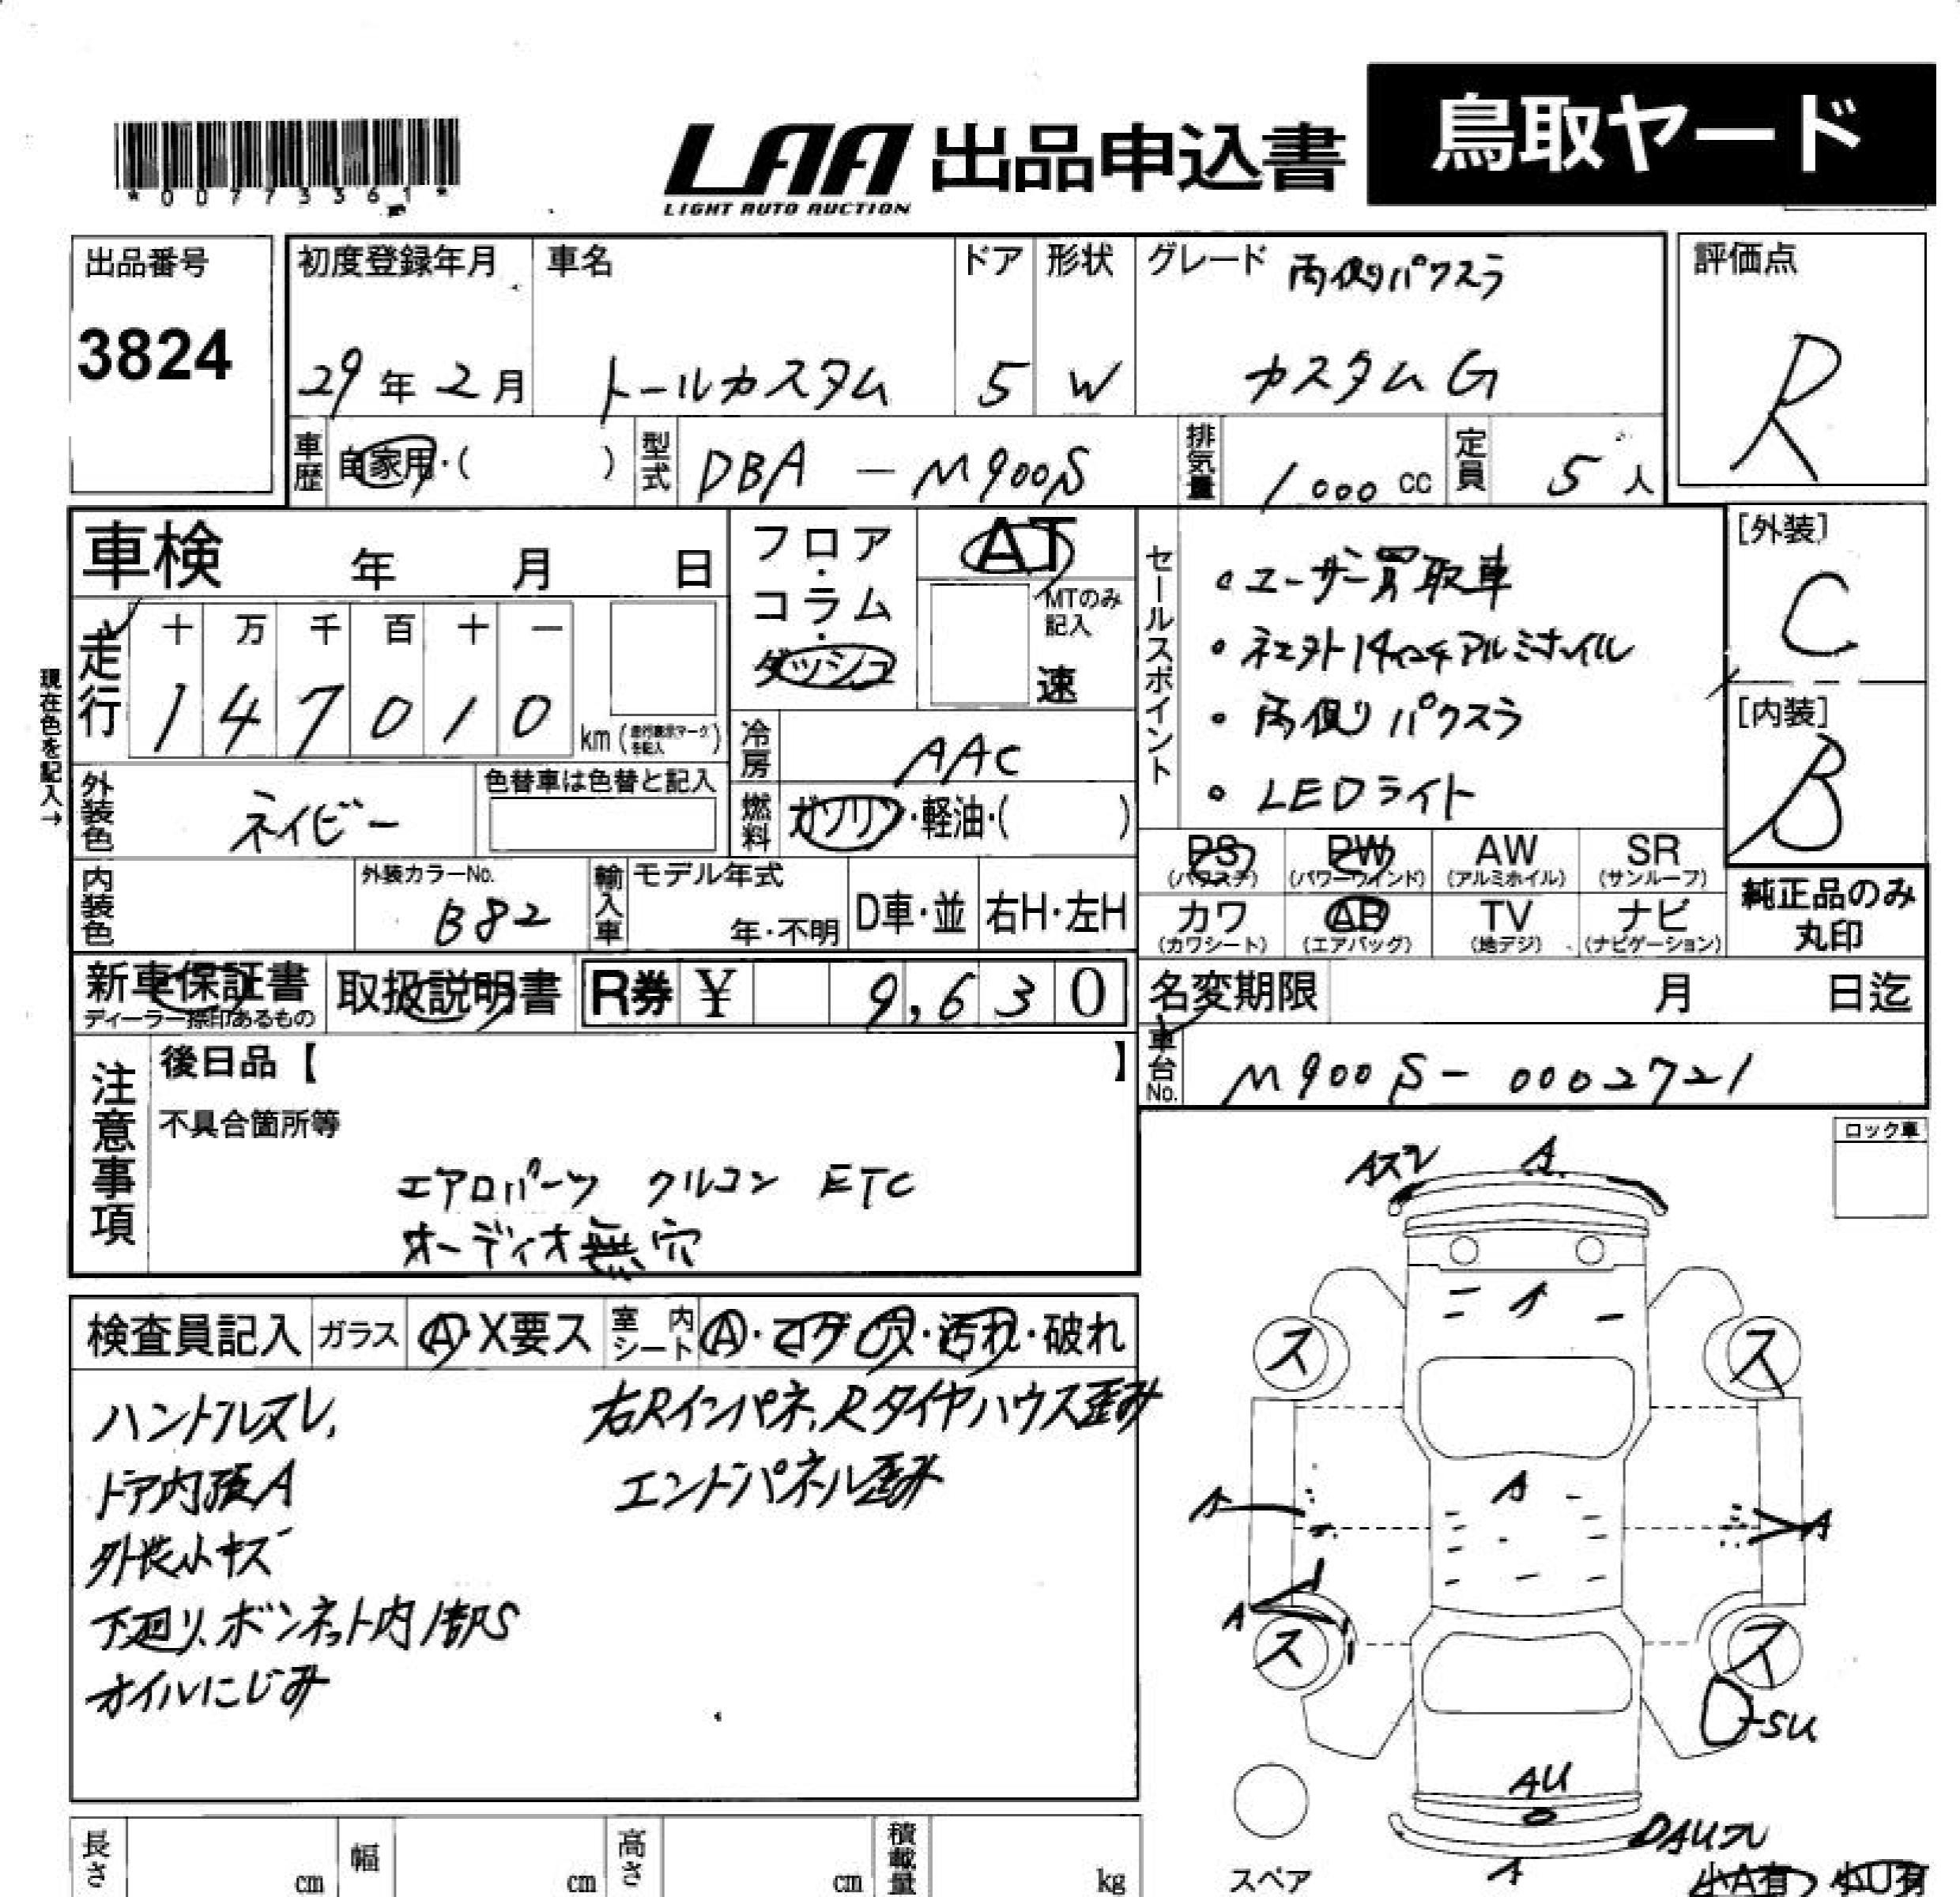 *00773361*
LAA 出品申込書 鳥取ヤード
LIGHT AUTO AUCTION
出品番号
3824
初度登録年月 車名 ドア 形状 グレード 両側パワスラ
29年2月 トールカスタム 5 W カスタムG
評価点
R
車歴 自家用・( ) 型式 DBA-M900S 排気量 1000cc 定員 5人
車検 年 月 日
フロア・コラム・ダッシュ
AT
MTのみ記入
速
セールスポイント
・ユーザー買取車
・社外14インチアルミホイル
・両側パワスラ
・LEDライト
[外装]
C
[内装]
B
走行 十 万 千 百 十 一
1 4 7 0 1 0 km (走行表示マークを記入)
現在色を記入→
冷房 AAC
外装色 ネイビー 色替車は色替と記入
燃料 ガソリン・軽油・( )
PS (パワステ) PW (パワーウインド) AW (アルミホイル) SR (サンルーフ)
内装色 外装カラーNo. B82 輸入車 モデル年式 年・不明 D車・並 右H・左H
カワ (カワシート) AB (エアバッグ) TV (地デジ) ナビ (ナビゲーション)
純正品のみ丸印
新車保証書 ディーラー捺印あるもの 取扱説明書 R券 ¥ 9,630
名変期限 月 日迄
車台No. M900S-0002721
注意事項 後日品【 】
不具合箇所等
エアロパーツ クルコン ETC
オーディオ無穴
ロック車
検査員記入 ガラス A・X要ス 室内シート A・コゲ・穴・汚れ・破れ
ハンドルスレ、 右Rインパネ、Rタイヤハウス歪み
ドア内張A エンドパネル歪み
外装小キズ
下廻り、ボンネット内1部S
オイルにじみ
Aスレ A
A
ス ス
A
A A
A
ス ス
SU
AU
DAUスレ
A
スペア
小A有 小U有
長さ cm 幅 cm 高さ cm 積載量 kg